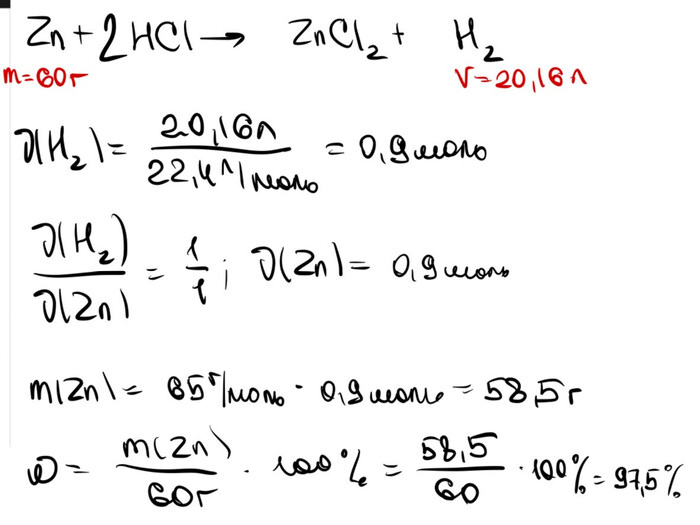 Zn + 2HCl → ZnCl₂ + H₂
m=60г V=20,16л
ν(H₂) = 20,16л / 22,4 л/моль = 0,9 моль
ν(H₂) / ν(Zn) = 1/1 ; ν(Zn) = 0,9 моль
m(Zn) = 65 г/моль · 0,9 моль = 58,5 г
ω = m(Zn) / 60г · 100% = 58,5 / 60 · 100% = 97,5%